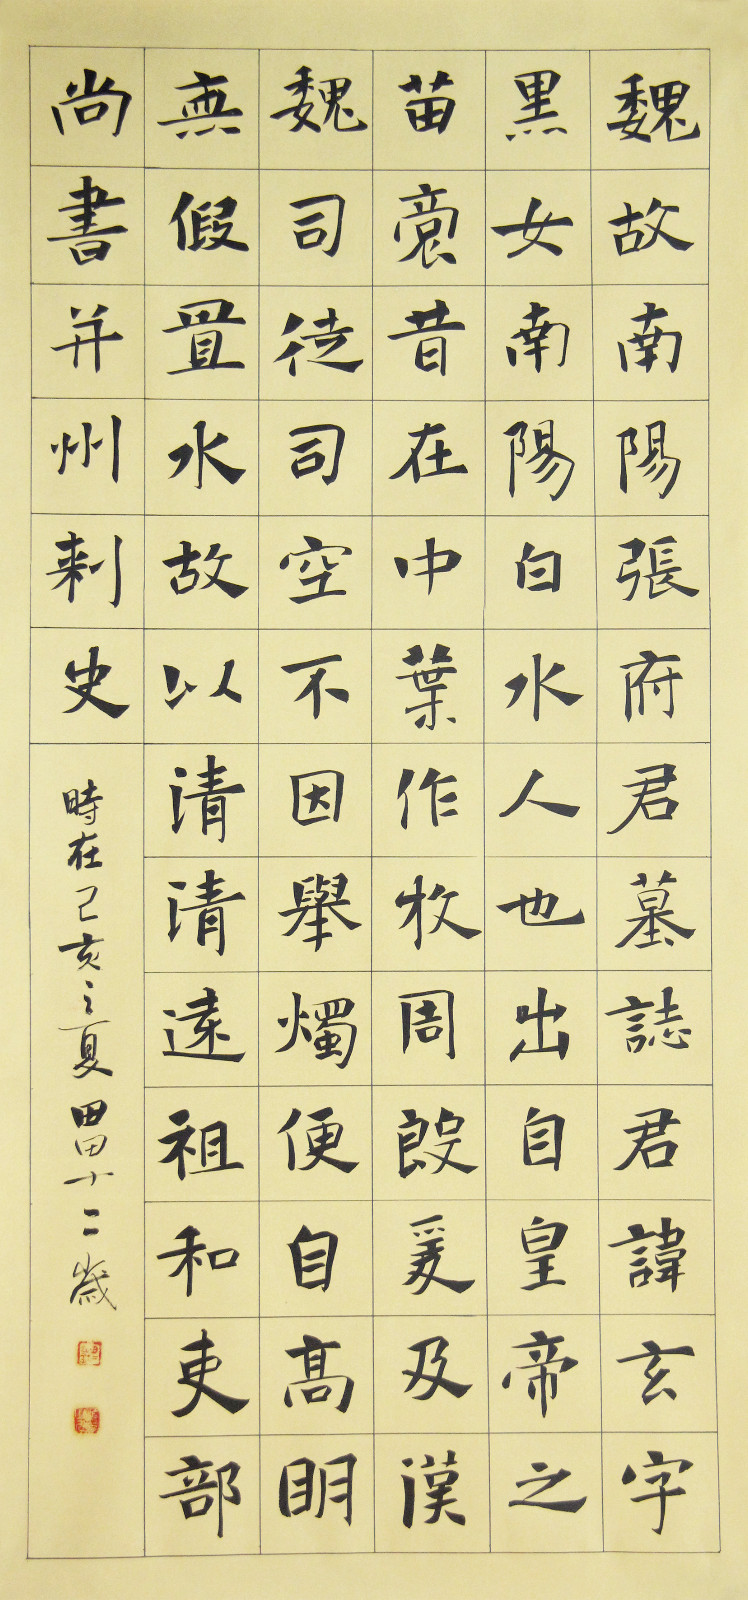 魏故南陽張府君墓誌君諱玄字
黑女南陽白水人也出自皇帝之
苗裔昔在中葉作牧周殷爰及漢
魏司徒司空不因舉燭便自高明
無假置水故以清清遠祖和吏部
尚書并州刺史
時在己亥之夏田田十二歲